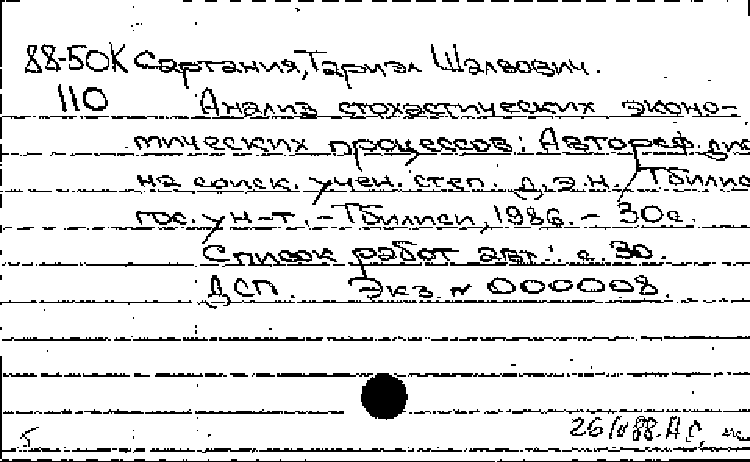 88-50К Сартания, Тариэл Шалвович.
110 Анализ стохастических эконо-
мических процессов: Автореф. дис
на соиск. учен. степ. д.э.н. / Тбилис
гос. ун-т. - Тбилиси, 1986. - 30с.
Список работ авт.: с. 30.
ДСП. Экз. № 000008.
88. А С